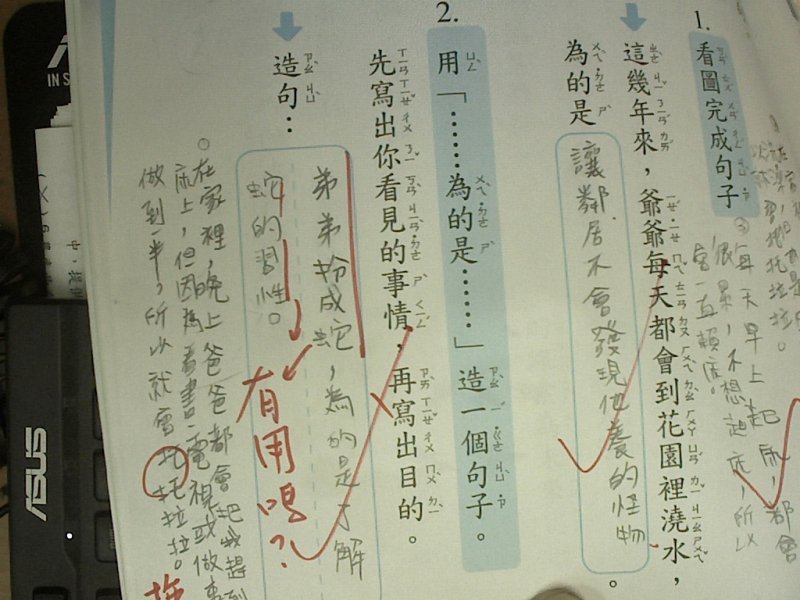 1.看圖完成句子
這幾年來，爺爺每天都會到花園裡澆水，
為的是
讓鄰居不會發現他養的怪物
。
2.用「……為的是……」造一個句子。
先寫出你看見的事情，再寫出目的。
造句：
弟弟扮成蛇，為的是了解
蛇的習性。
有用嗎？
每天早上起床，都會
很累，不想起床，所以
會一直賴床。
在家裡，晚上爸爸都會把我趕到
床上，但因為看書、電視或做事
做到一半，所以就會托托拉拉。
拖
ASUS
IN S